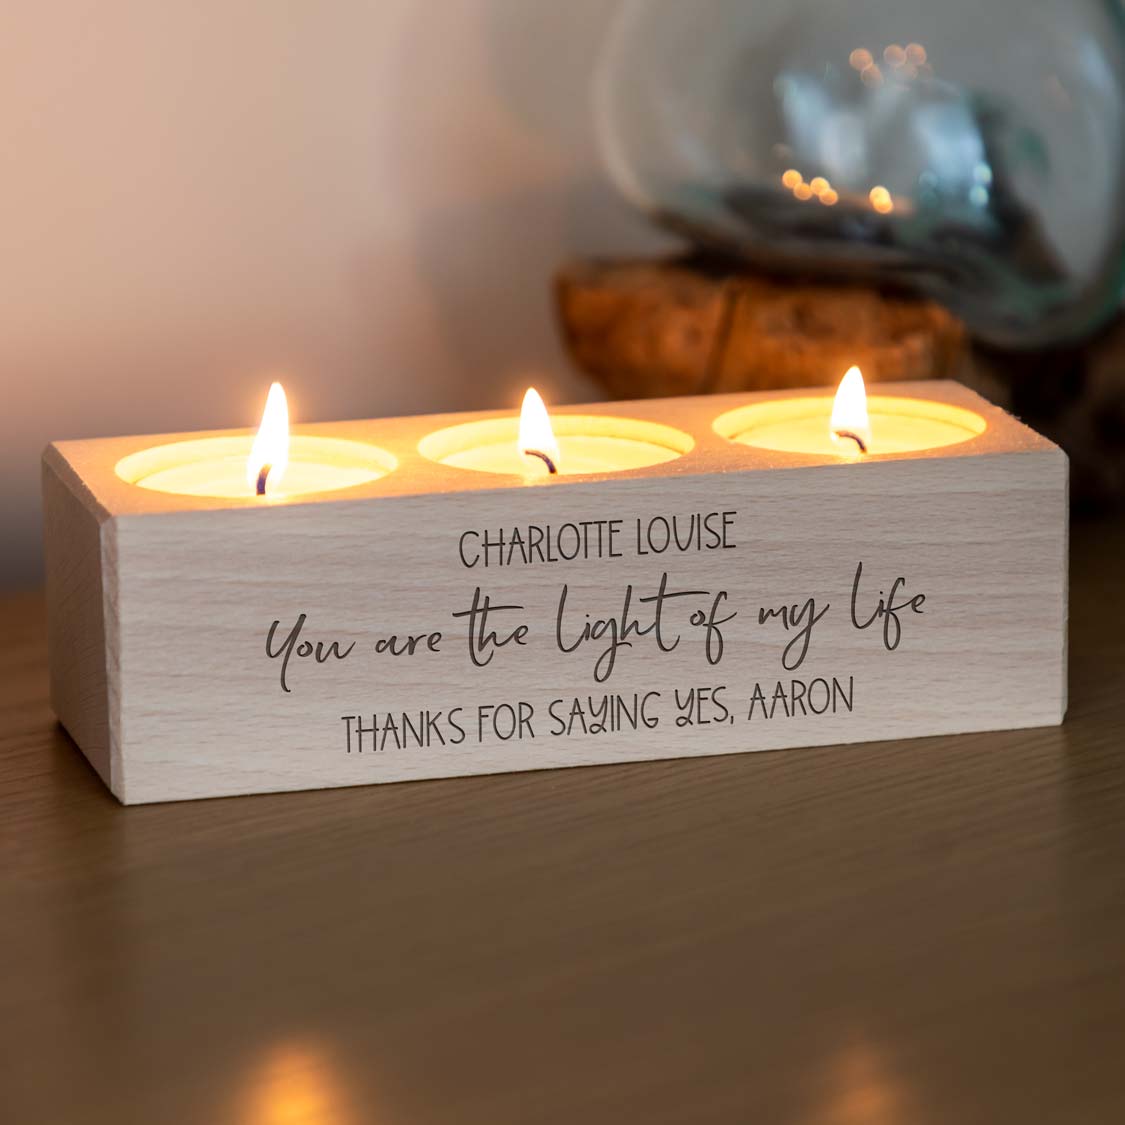 CHARLOTTE LOUISE
You are the light of my life
THANKS FOR SAYING YES, AARON